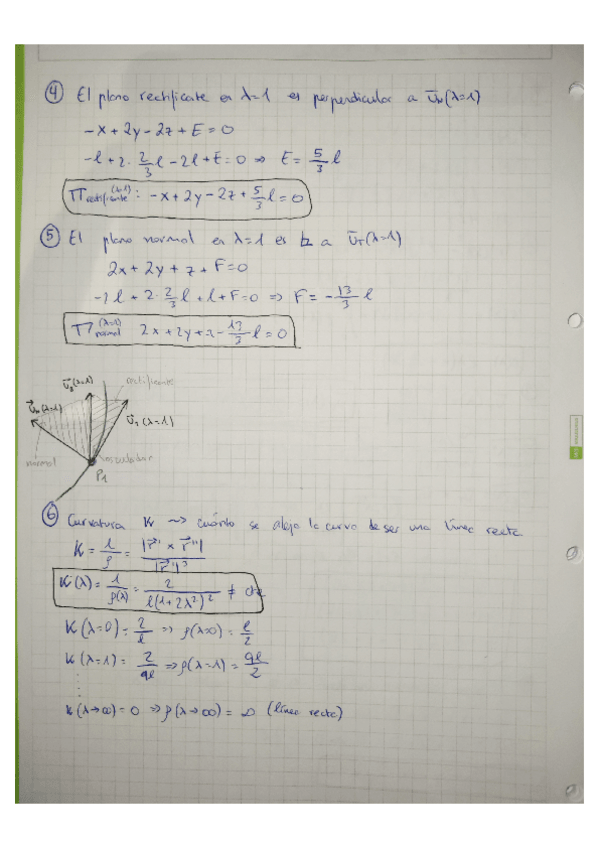 ④ El plano rectificate en λ=1 es perpendicular a u⃗N(λ=1)
-x+2y-2z+E=0
-l+2·2/3 l-2l+E=0 ⇒ E=5/3 l
Π rectificante (λ=1): -x+2y-2z+5/3 l=0
⑤ El plano normal en λ=1 es ⊥ a u⃗T(λ=1)
2x+2y+z+F=0
-2l+2·2/3 l+l+F=0 ⇒ F=-13/3 l
Π normal (λ=1) 2x+2y+z-13/3 l=0
u⃗B(λ=1)
rectificante
u⃗N(λ=1)
u⃗T(λ=1)
normal
osculador
P1
⑥ Curvatura K ~> cuánto se aleja la curva de ser una línea recta
K=1/ρ=|r⃗' × r⃗''|/|r⃗'|³
K(λ)=1/ρ(λ)=2/l(1+2λ²)² ≠ cte
K(λ=0)=2/l ⇒ ρ(λ=0)=l/2
K(λ=1)=2/9l ⇒ ρ(λ=1)=9l/2
K(λ→∞)=0 ⇒ ρ(λ→∞)=∞ (línea recta)